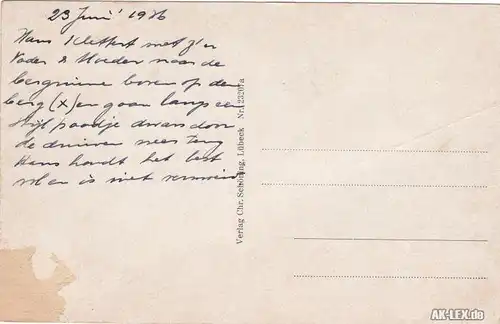 23 Juni 1936
Hans Klettert met z'n
Vader & Moeder naar de
bergruïne boven op den
berg (x) en gaan langs een
stijl paadje dwars door
de druiven weer terug
Hans houdt het best
vol en is niet vermoeid
Verlag Chr. Schöning, Lübeck Nr. 23207a
AK-LEX.de